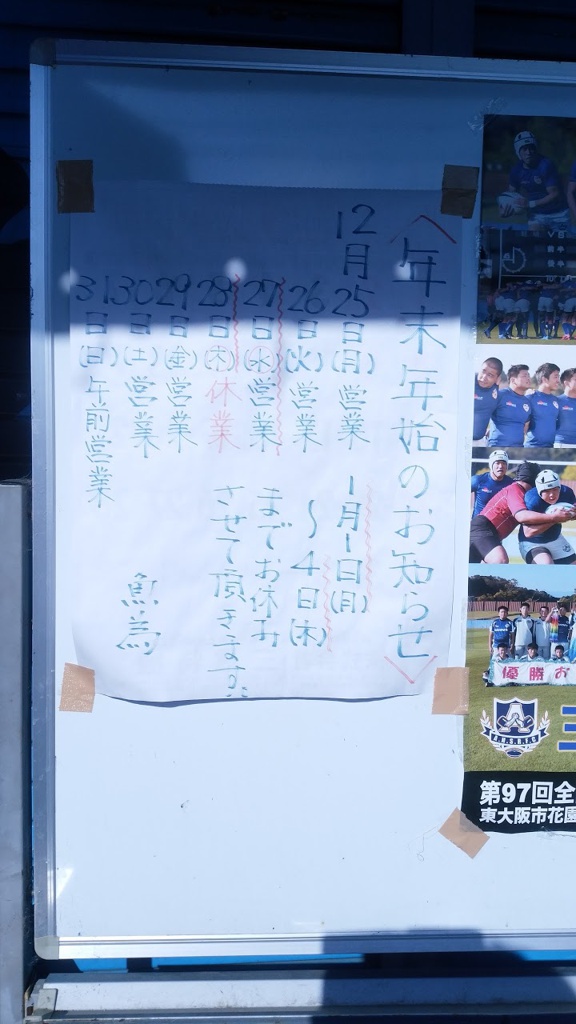 〈年末年始のお知らせ〉
12月
25日(月)営業
26日(火)営業
27日(水)営業
28日(木)休業
29日(金)営業
30日(土)営業
31日(日)午前営業
1月1日(月)
〜4日(木)
までお休み
させて頂きます。
魚為
優勝お
第97回全
東大阪市花園